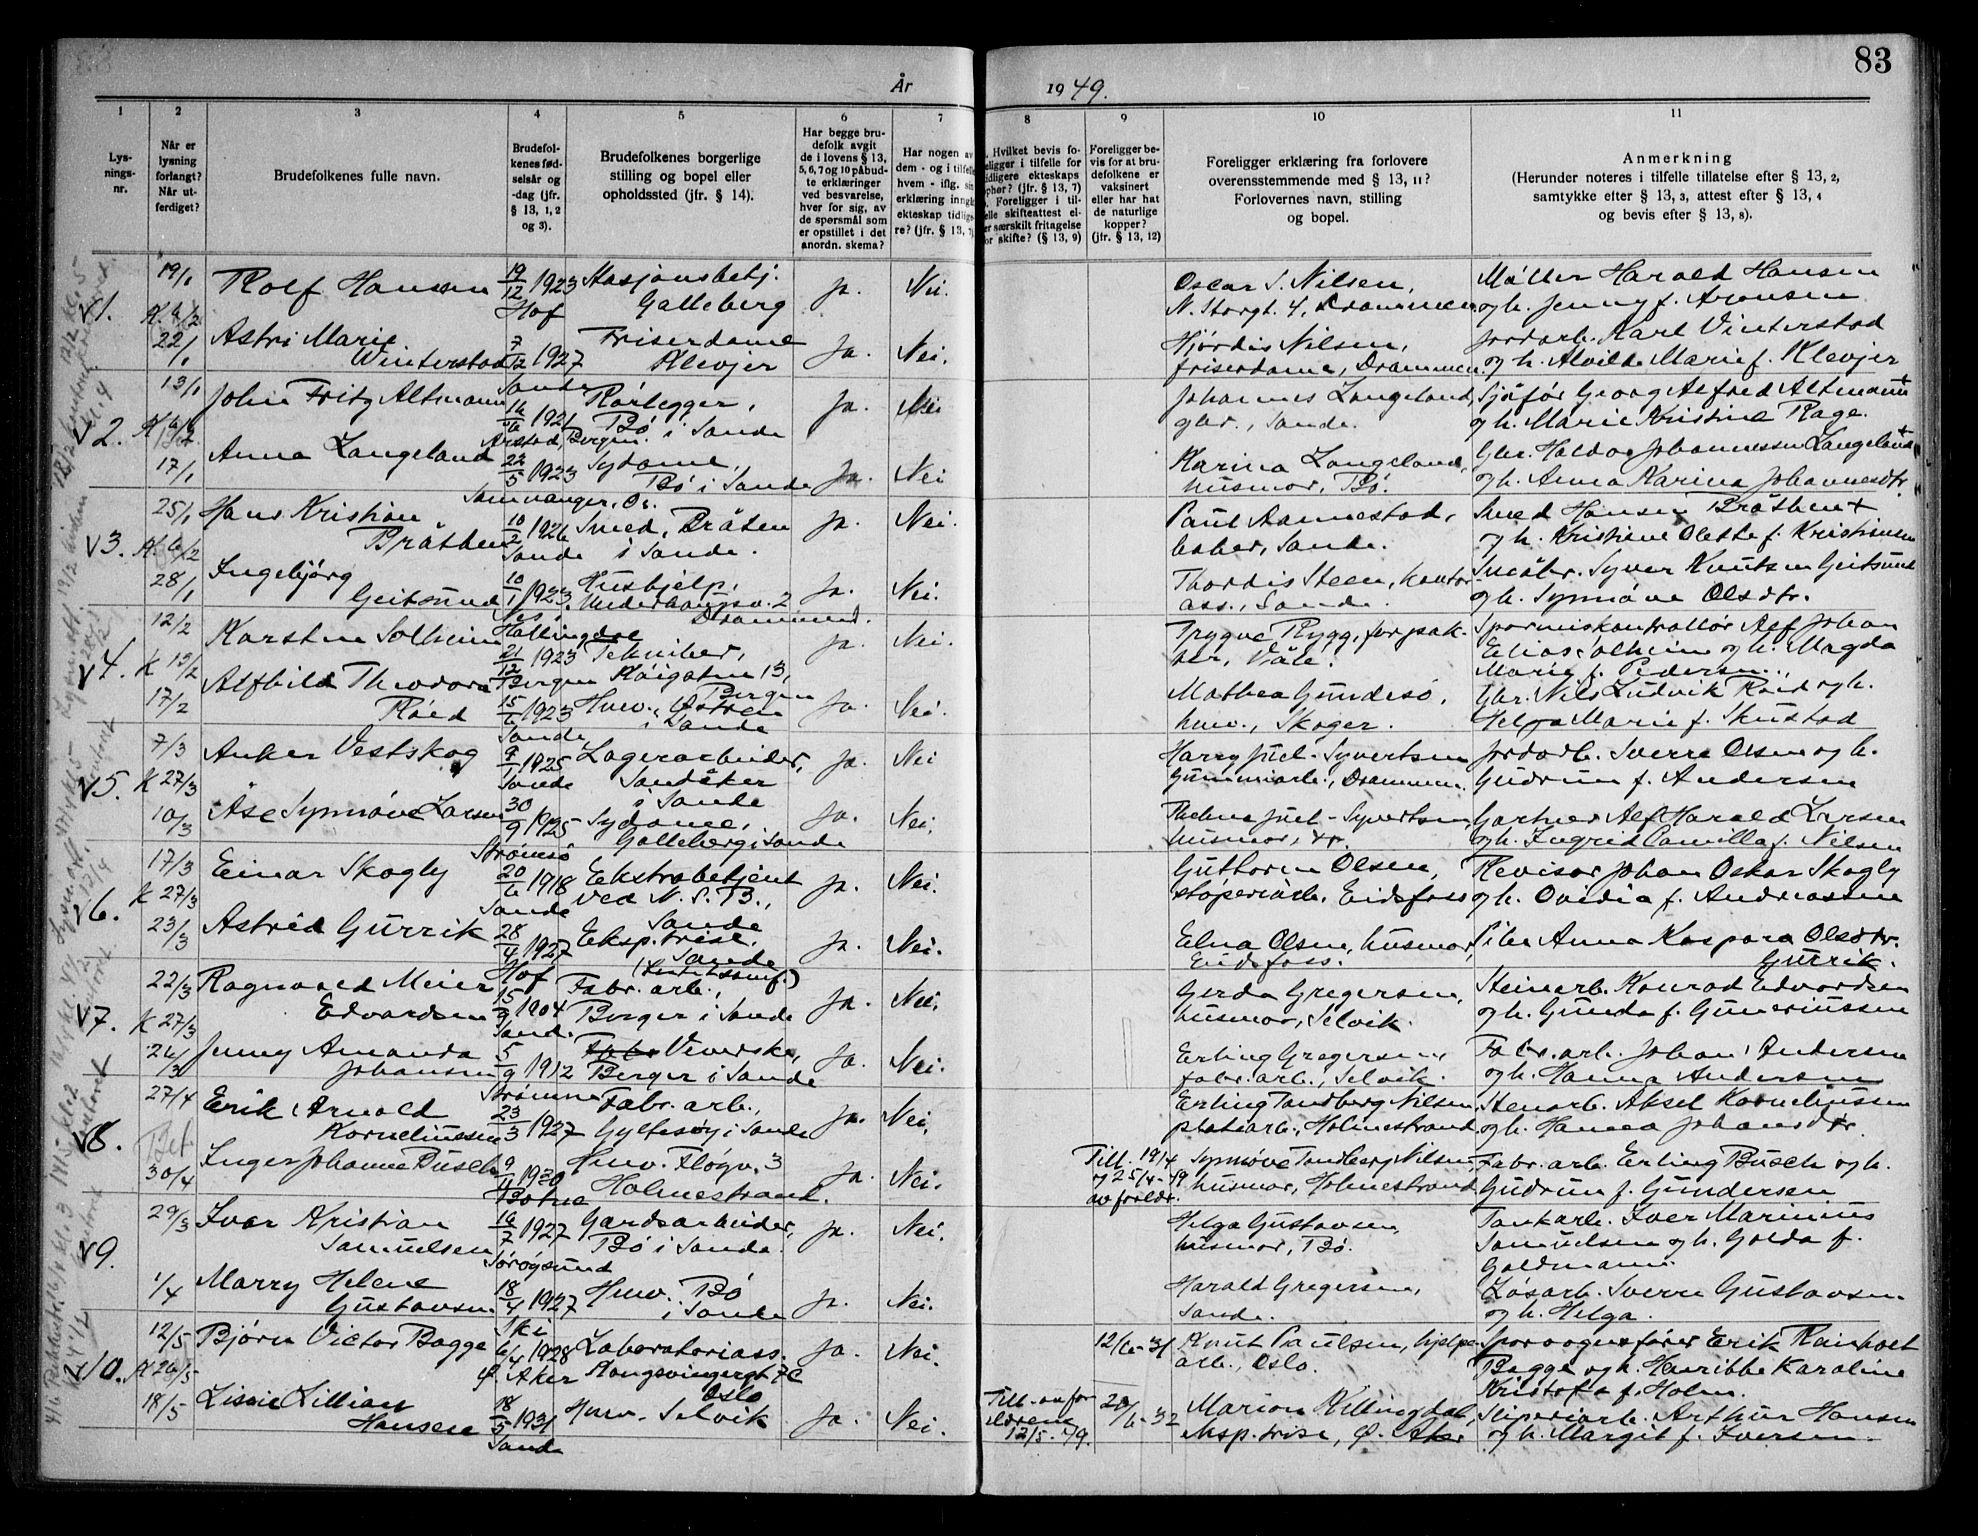 83
År
19 49.
1
2
3
4
5
6
7
8
9
10
11
Lys-
nings-
nr.
Når er
lysning
forlangt?
Når ut-
ferdiget?
Brudefolkenes fulle navn.
Brudefol-
kenes fød-
selsår og
-dag (jfr.
§ 13, 1, 2
og 3).
Brudefolkenes borgerlige
stilling og bopel eller
opholdssted (jfr. § 14).
Har begge bru-
defolk avgit
de i lovens § 13,
5, 6, 7 og 10 påbud-
te erklæringer
ved besvarelse,
hver for sig, av
de spørsmål som
er opstillet i det
anordn. skema?
Har nogen av
dem - og i tilfelle
hvem - iflg. sin
erklæring inngå
ekteskap tidlige-
re? (jfr. § 13, 7)
Hvilket bevis fo-
eligger i tilfelle for
tidligere ekteskaps
opher? (jfr. § 13, 7)
Foreligger i til-
elle skifteattest el-
er særskilt fritagelse
for skifte? (§ 13, 9)
Foreligger be-
vis for at bru-
defolkene er
vaksinert
eller har hat
de naturlige
kopper?
(jfr. § 13, 12)
Foreligger erklæring fra forlovere
overensstemmende med § 13, 11?
Forlovernes navn, stilling
og bopel.
Anmerkning
(Herunder noteres i tilfelle tillatelse efter § 13, 2,
samtykke efter § 13, 3, attest efter § 13, 4
og bevis efter § 13, 8).
V1.
19/1
Rolf Hansen
19/12 1923
Hof
Stasjonsbetj.
Galleberg
Ja.
Nei.
Oscar S. Nilsen,
N. Storgt. 4, Drammen
Møller Harald Hansen
og h. Jenny f. Aronsen
22/1
Astri Marie
Winterstad
7/12 1927
Sande
Friserdame
Klevjer
Ja.
Nei.
Hjørdis Nilsen,
friserdame, Drammen.
Jordarb. Karl Vinterstad
og h. Alvilde Marie f. Klevjer
V2.
13/1
John Fritz Altmann
16/6 1921
Årstad, Bergen.
Rørlegger,
Bø i Sande
Ja.
Nei
Johannes Langeland,
gbr., Sande.
Sjåfør Georg Alfred Altmann+
og h. Marie Kristine Rage.
17/1
Anna Langeland
22/5 1923
Samnanger, Os.
Sydame,
Bø i Sande
Ja.
Nei
Karina Langeland,
husmor, Bø.
Gbr. Haldor Johannessen Langeland+
og h. Anna Karina Johannesdtr.
V3.
25/1
K. 6/2
Hans Kristian
Bråthen
10/2 1926
Sande
Smed, Bråten
i Sande.
Ja.
Nei.
Paul Aannestad,
baker, Sande.
Smed Hansen Bråthen+
og h. Kristiane Olette f. Kristiansen
28/1
Ingebjørg
Geitsund
10/1 1923.
Nes i
Hallingdal
Hushjelp,
Underhaugsv. 2
Drammen.
Ja.
Nei.
Thordis Steen, kontor-
ass., Sande.
Småbr. Syver Knutsen Geitsund
og h. Synnøve Olsdtr.
V4.
12/2
K 15/2
Karsten Solheim
21/12 1923
Bergen
Tekniker,
13,
Bergen
Ja.
Nei.
Trygve Rygg, forpak-
ter, Våle.
Sporveiskontrollør Alf Johan
Elias Solheim og h. Magda
Marie f. Pedersen.
17/2
Alfhild Theodora
Røed
15/6 1923
Sande
Husv. Østren
i Sande
Ja.
Nei.
Mathea Gundesø,
husv., Skoger.
Gbr. Nils Ludvik Røed og h.
Helga Marie f. Skustad
V5.
7/3
K 27/3
Anker Vestskog
9/1 1925
Sande
Lagerarbeider,
Sandåker
i Sande
Ja.
Nei
Harry Juel-Syvertsen
Gummiarb., Drammen.
Jordarb. Sverre Olsen og h.
Gudrun f. Andersen
10/3
Åse Synnøve Larsen
30/9 1925
Strømsø
Sydame,
Galleberg i Sande
Ja.
Nei.
Thelma Juel-Syvertsen,
husmor, Dr.
Gartner Alf Harald Larsen
og h. Ingrid Camilla f. Nilsen
V6.
17/3
K 27/3
Einar Skogly
20/6 1918
Sande
Ekstrabetjent
ved N. S. B.,
Sande
Ja.
Nei.
Guthorm Olsen,
støperiarb. Eidsfoss
Revisor Johan Oskar Skogly
og h. Ovidia f. Andreassen
23/3
Astrid Gurrik
28/4 1927
Hof
Eksp.trise,
Sande
Ja.
Nei.
Elna Olsen, husmor,
Eidsfoss.
Pike Anna Kaspara Olsdtr.
Gurrik.
V7.
22/3
K 27/3
Ragnvald Meier
Edvardsen
15/9 1904
Sande
Fabr. arb.,
Berger i Sande
Ja.
Nei.
Gerda Gregersen,
husmor, Selvik.
Steinarb. Konrad Edvardsen
og h. Gunda f. Guneriussen
24/3
Jenny Amanda
Johansen
5/9 1912
Strømm
Veverske,
Berger i Sande
Ja.
Nei.
Erling Gregersen,
fabr. arb., Selvik.
Fabr. arb. Johan Andersen
og h. Hanna Andersen
V8.
27/4
Bet
Erik Arnold
Korneliussen
23/3 1927
Fabr. arb.,
Gyltesø i Sande
Ja.
Nei.
Erling Tandberg Nilsen,
platearb., Holmestrand
Stenarb. Aksel Korneliussen
og h. Hanna Johansdtr.
30/4
Inger Johanne Busch
9/11 1930
Botne
Husv. Fløgv. 3
Holmestrand.
Ja.
Nei.
Till. 19/4
og 25/4-49
av foreldr.
Synnøve Tandberg Nilsen,
husmor, Holmestrand
Fabr. arb. Erling Busch og h.
Gudrun f. Gundersen
V9.
29/3
Ivar Kristian
Samuelsen
16/7 1927
Sørøysund
Gardsarbeider,
Bø i Sande.
Ja.
Nei.
Helga Gustavsen,
husmor, Bø.
Tankarb. Iver Marinius
Samuelsen og h. Golda f.
Goldmann
1/4
Marry Helene
Gustavsen
18/4 1927
Ski
Husv. Bø
i Sande
Ja.
Nei.
Harald Gregersen,
Sande.
Løsarb. Sverre Gustavsen
og h. Helga.
V10.
12/5
K 26/5
Bjørn Victor Bagge
6/4 1928
Ø. Aker
Laboratorieass.
Kongsvingergt. 7C
Oslo
Ja.
Nei.
12/6-31
Knut Paulsen, hjelpe-
arb., Oslo.
Sporvognsfører Erik Reinholt
Bagge og h. Henrikke Karoline
Kristofa f. Holm.
18/5
Lissie Lillian
Hansen
18/5 1931
Sande
Husv. Selvik
Ja.
Nei.
Till. av for-
eldrene
12/5-49.
20/6-32
Marion Killingdal,
eksp.trise, Ø. Aker
Sliperiarb. Arthur Hansen
og h. Margit f. Iversen.